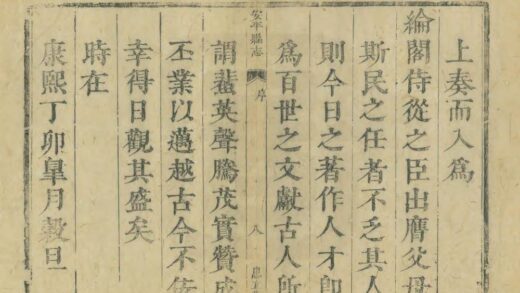 上奏而入爲
綸閣侍從之臣出膺父母
斯民之任者不乏其人
則今日之著作人才即
爲百世之文獻古人所
安平縣志
序
八
謂蜚英聲騰茂實贊成
丕業以邁越古今不佞
幸得日觀其盛矣
時在
康熙丁卯皐月穀旦